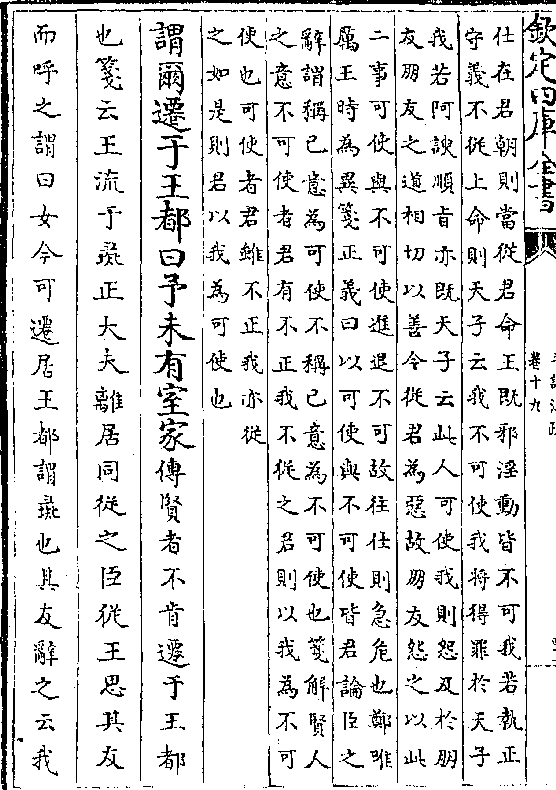 欽定四庫全書
卷十九
仕在君朝則當從君命王既邪淫動皆不可我若執正
守義不從上命則天子云我不可使我將得罪於天子
我若阿諛順旨亦既天子云此人可使我則怨及於朋
友朋友之道相切以善今從君為惡故朋友怨之以此
二事可使與不可使進退不可故往仕則急危也鄭唯
厲王時為異箋正義曰以可使與不可使皆君論臣之
辭謂稱己意為可使不稱己意為不可使也箋解賢人
之意不可使者君有不正我不從之君則以我為不可
使也可使者君雖不正我亦從
之如是則君以我為可使也
謂爾遷于王都曰予未有室家傳賢者不肯遷于王都
也箋云王流于彘正大夫離居同從之臣從王思其友
而呼之謂曰女今可遷居王都謂彘也其友辭之云我